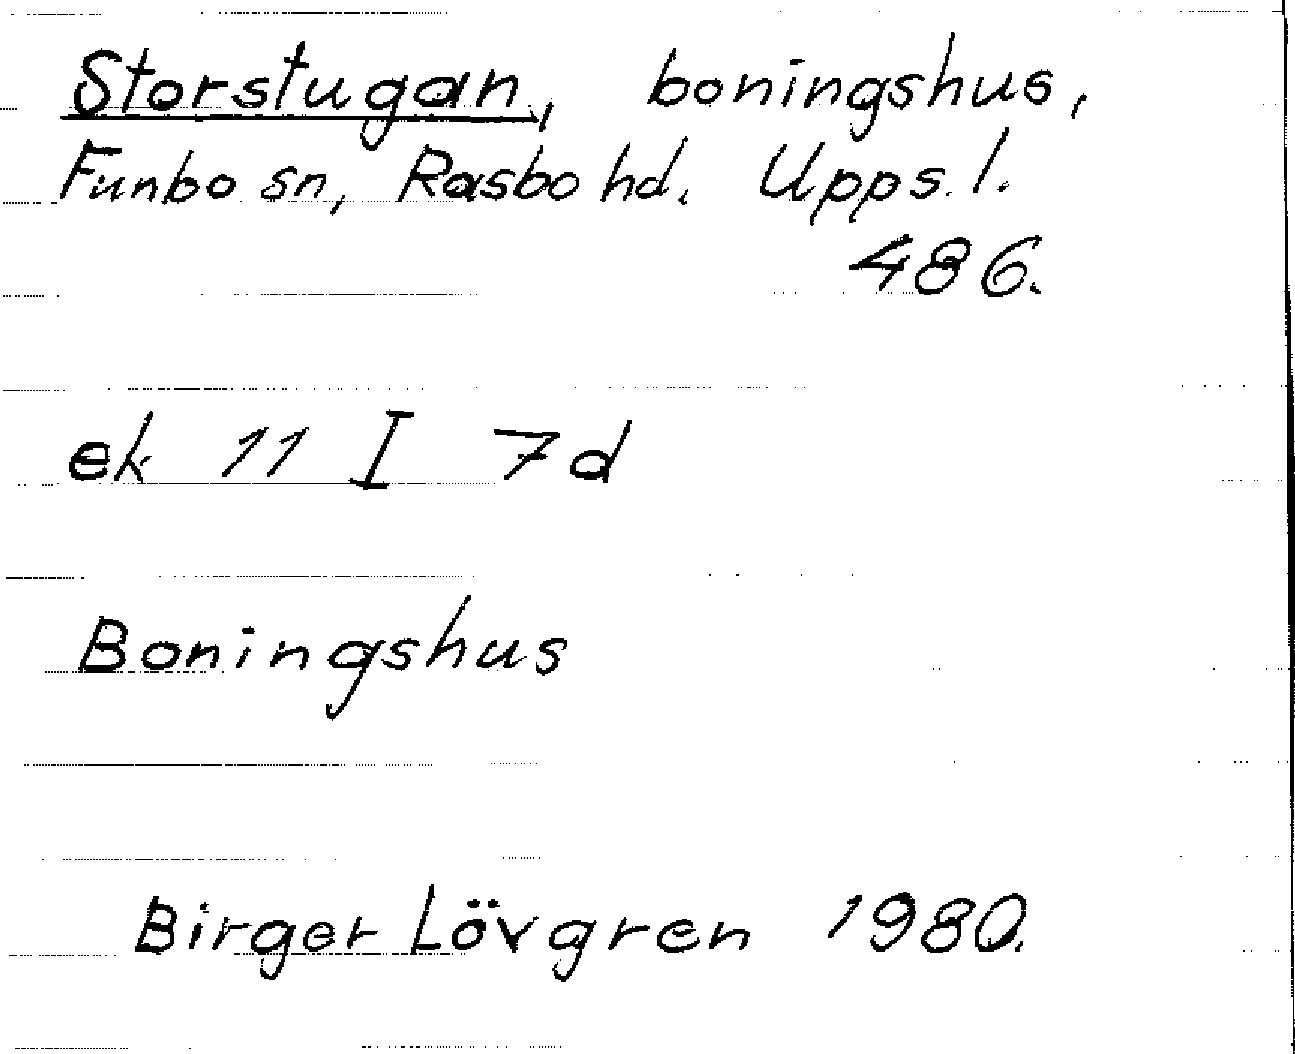 Storstugan, boningshus,
Funbo sn, Rasbo hd. Upps. l.
486.
ek 11 I 7d
Boningshus
Birger Lövgren 1980.